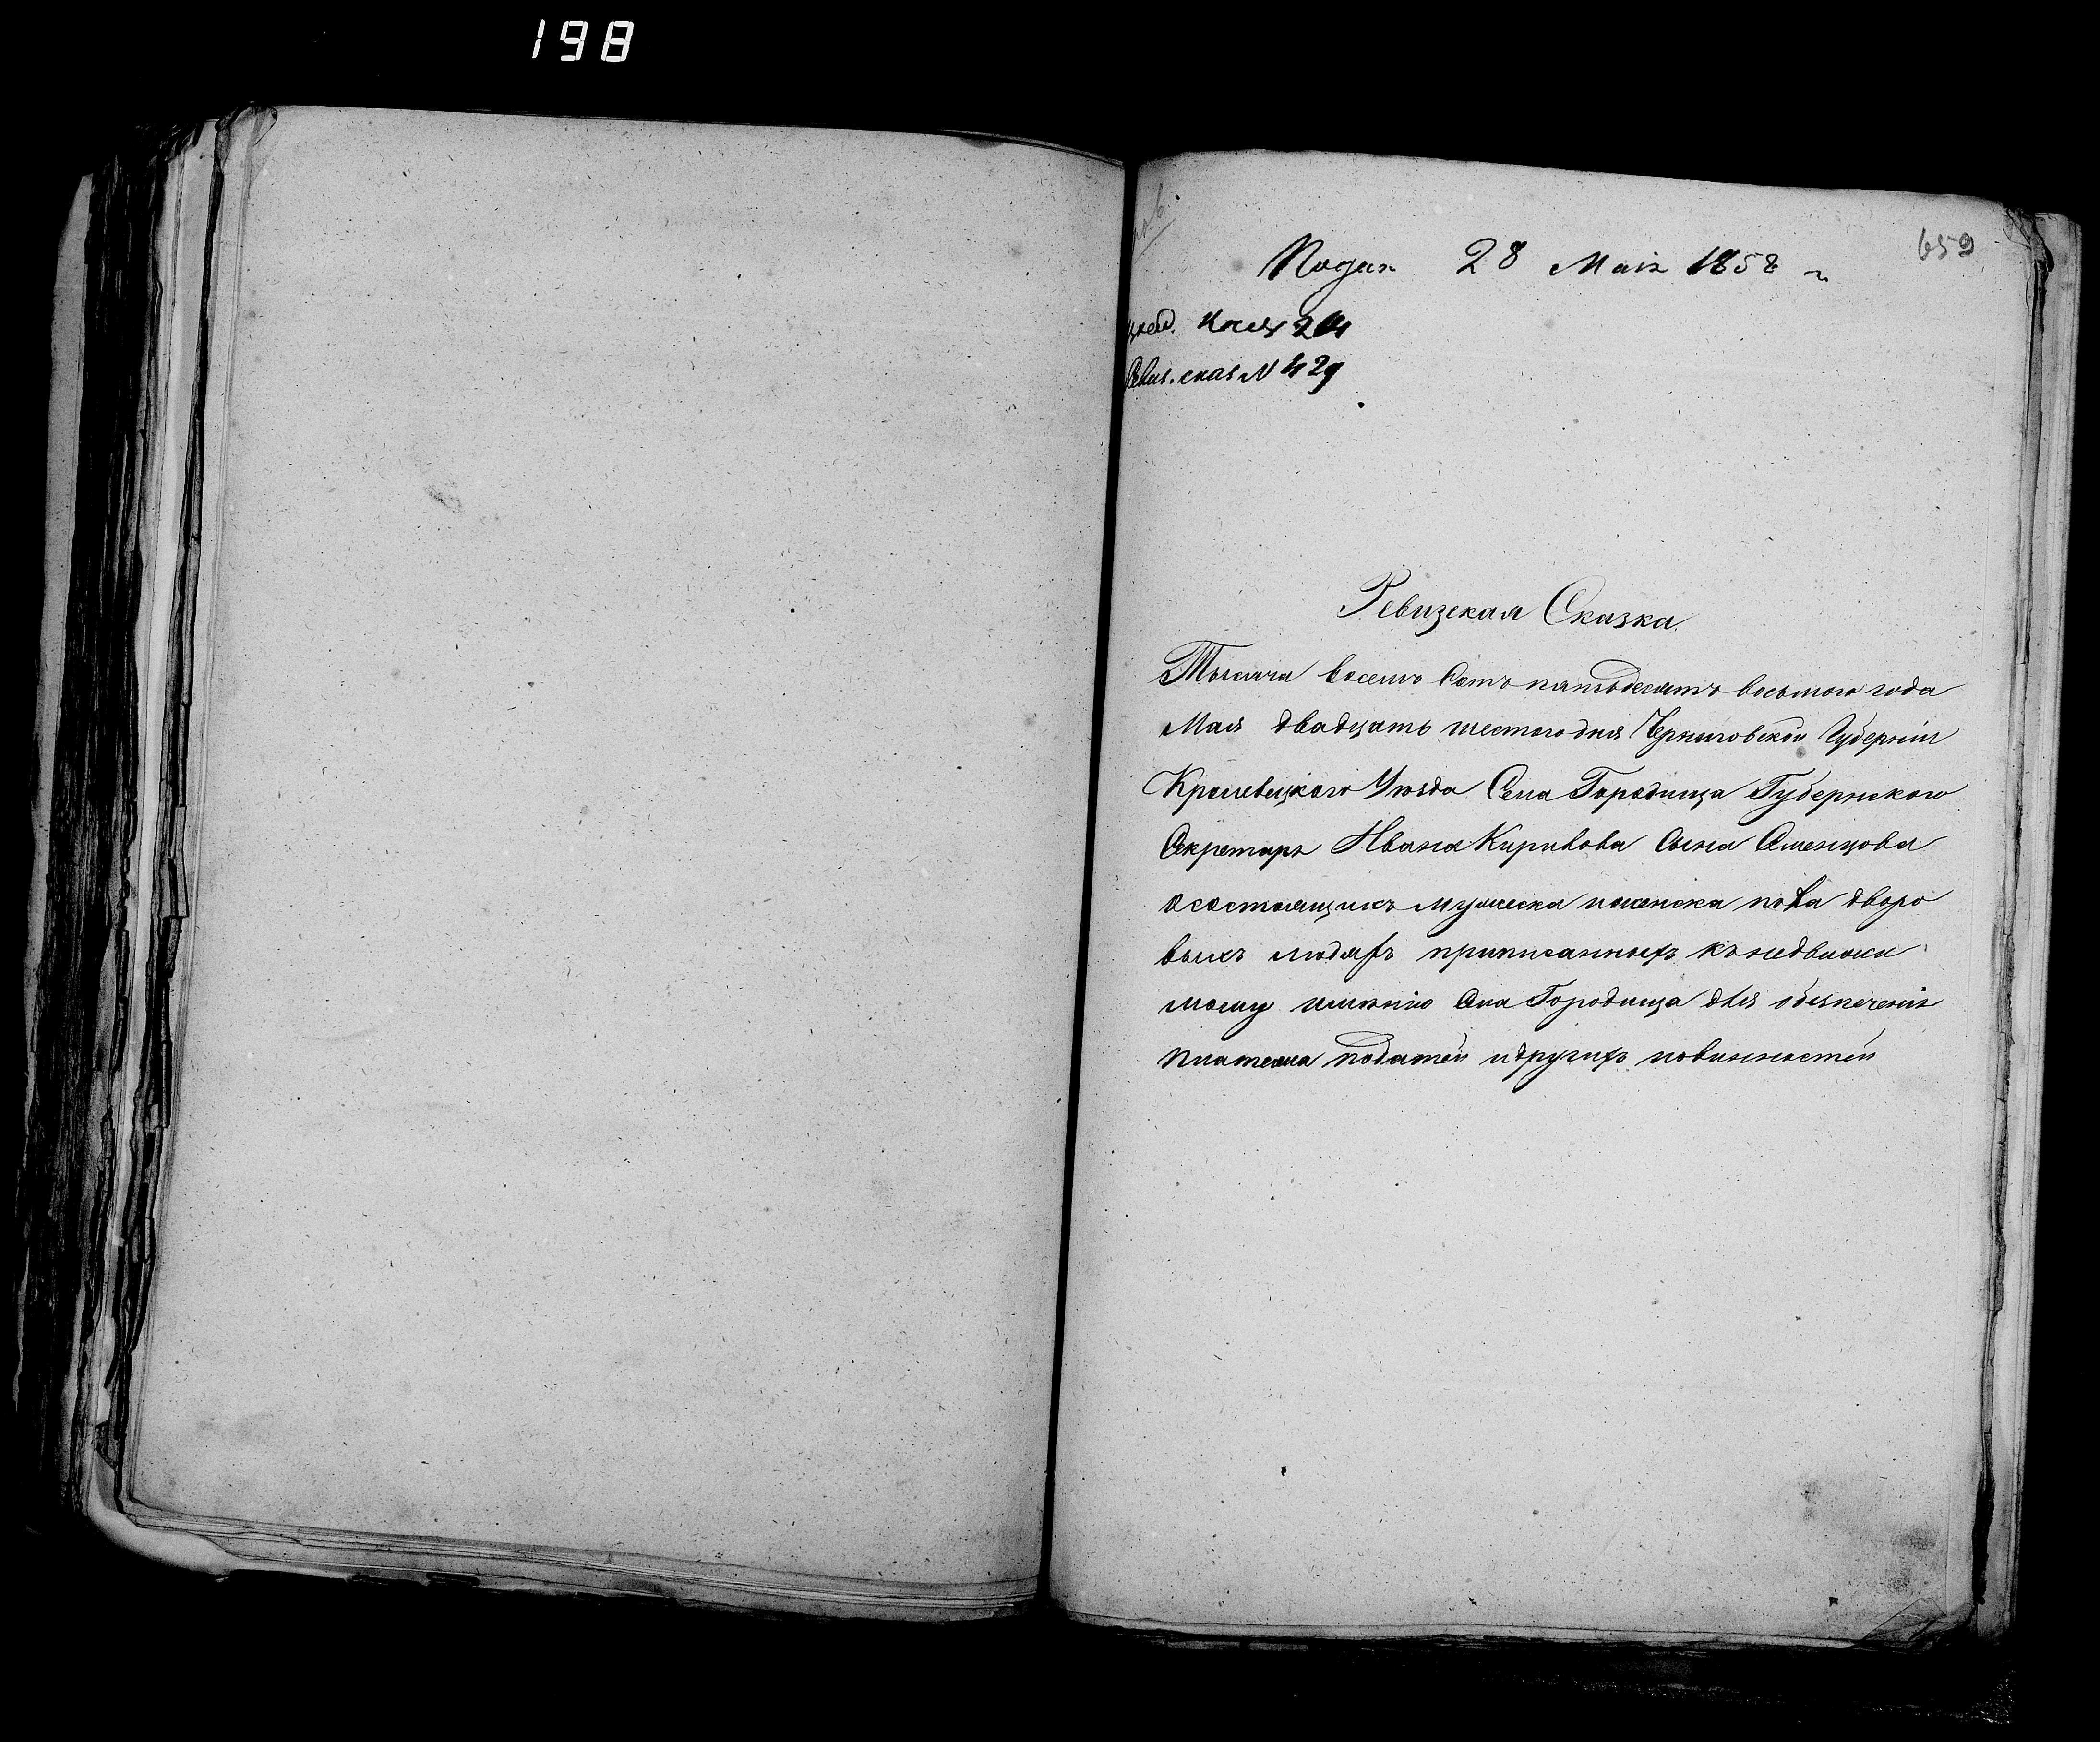 198
659
Подан 28 Маія 1858 г
204
скаs N 429
Ревизская Сказка
Тысяча восемъ Сотъ пятьдесятъ восьмого года
Мая двадцать шестого дня Черниговской Губерніи
Кролевецкого Уѣзда Села Городища Губернского
Секретаря Ивана Кирилова Сына Семенцова
о состоящихъ мужеска и женска пола дворо
выхъ людяхъ приписанныхъ къ недвижи
мому имѣнію Села Городища для обезпеченія
платежа податей и другихъ повинностей